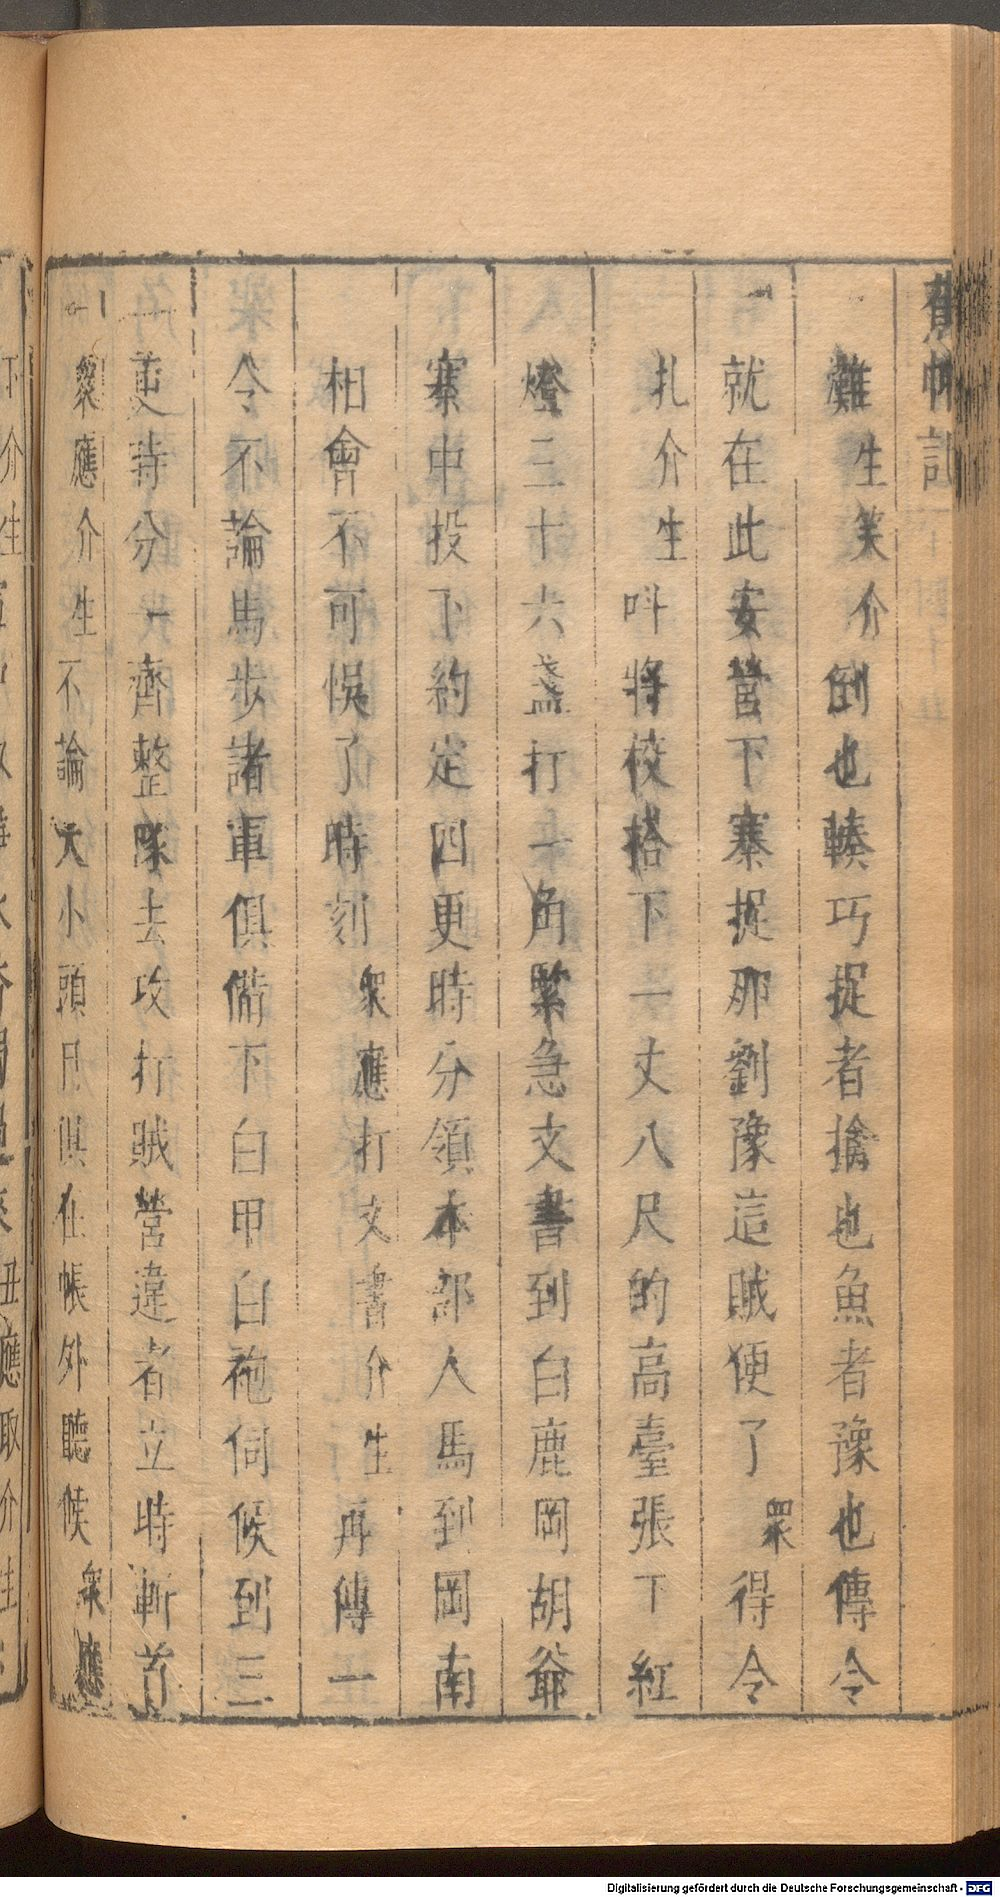 灘生笑介倒也輳巧捉者擒也魚者豫也傳令
就在此安營下寨捉那劉豫這賊便了眾得令
扎介生呌將校搭下一丈八尺的高臺張下紅
燈三十六盞打一角緊急文書到白鹿岡胡爺
寨中投下約定四更時分領本部人馬到岡南
相會不可悞了時刻眾應打文書介生再傳一
令不論馬步諸軍俱備下白甲白袍伺候到三
更時分一齊整隊去攻打賊營違者立時斬首
眾應介生不論大小頭目俱在帳外聽候眾應
Digitalisierung gefördert durch die Deutsche Forschungsgemeinschaft - DFG